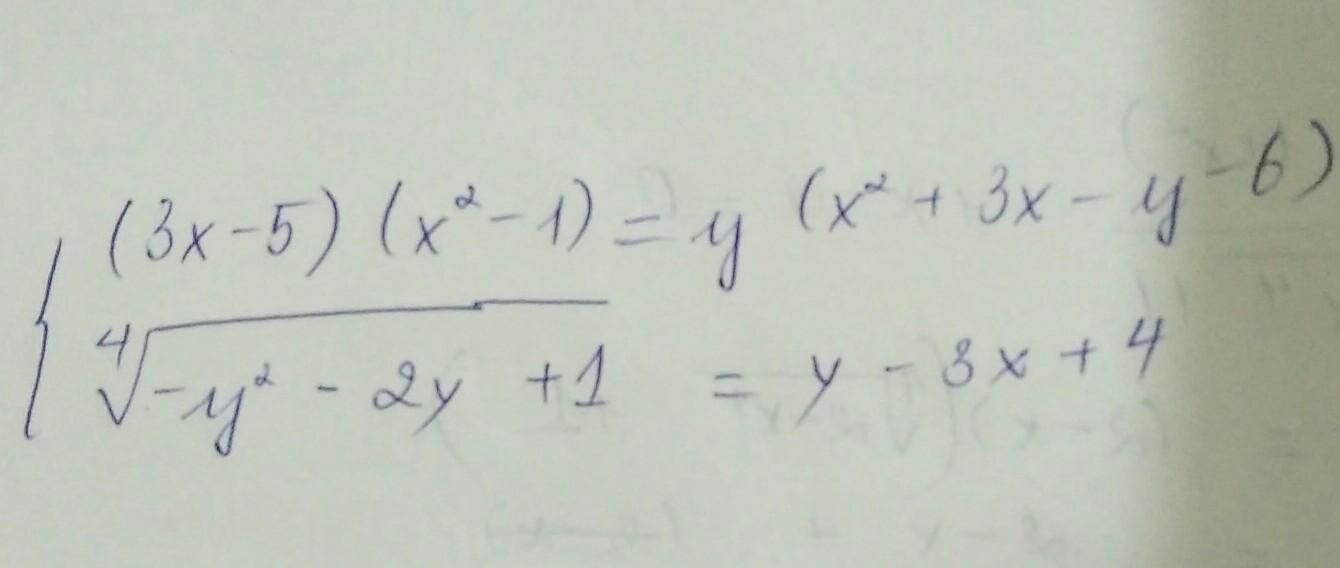 (3x-5)(x²-1) = y(x² + 3x - y - 6)
∜(-y² - 2y + 1) = y - 3x + 4